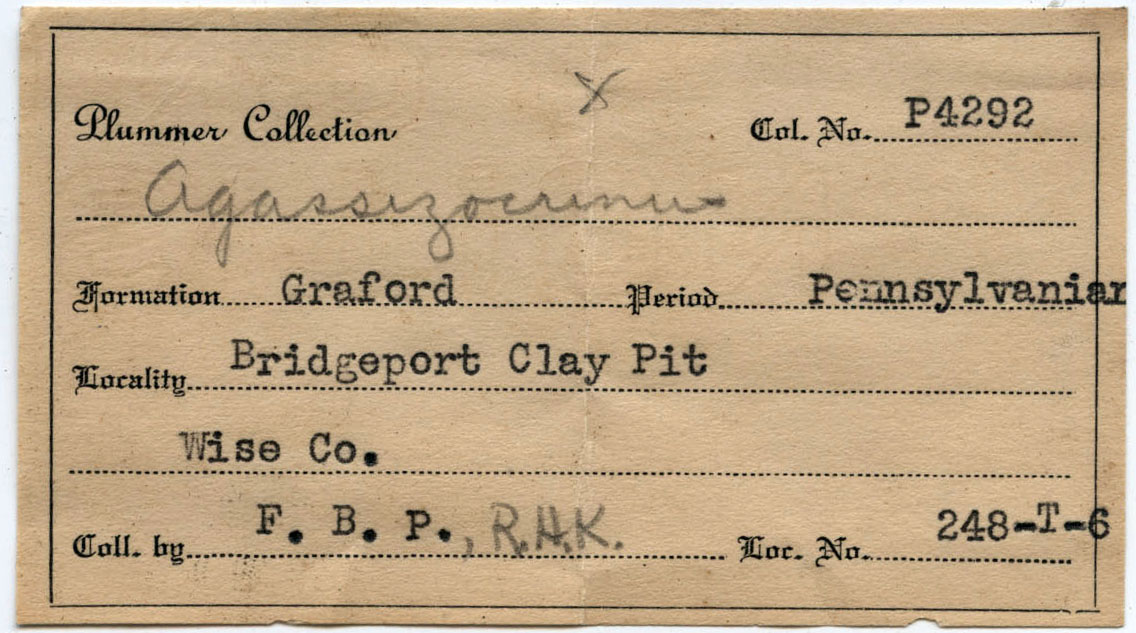 x
Plummer Collection Col. No. P4292
Agassizocrinus
Formation Graford Period Pennsylvanian
Locality Bridgeport Clay Pit
Wise Co.
Coll. by F. B. P., R.H.K. Loc. No. 248-T-6